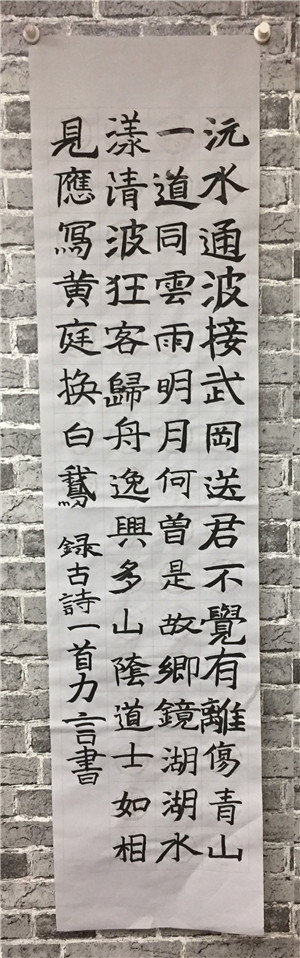 沅水通波接武岡送君不覺有離傷青山
一道同雲雨明月何曾是故鄉鏡湖湖水
漾清波狂客歸舟逸興多山陰道士如相
見應寫黄庭换白鵝 録古詩一首力言書